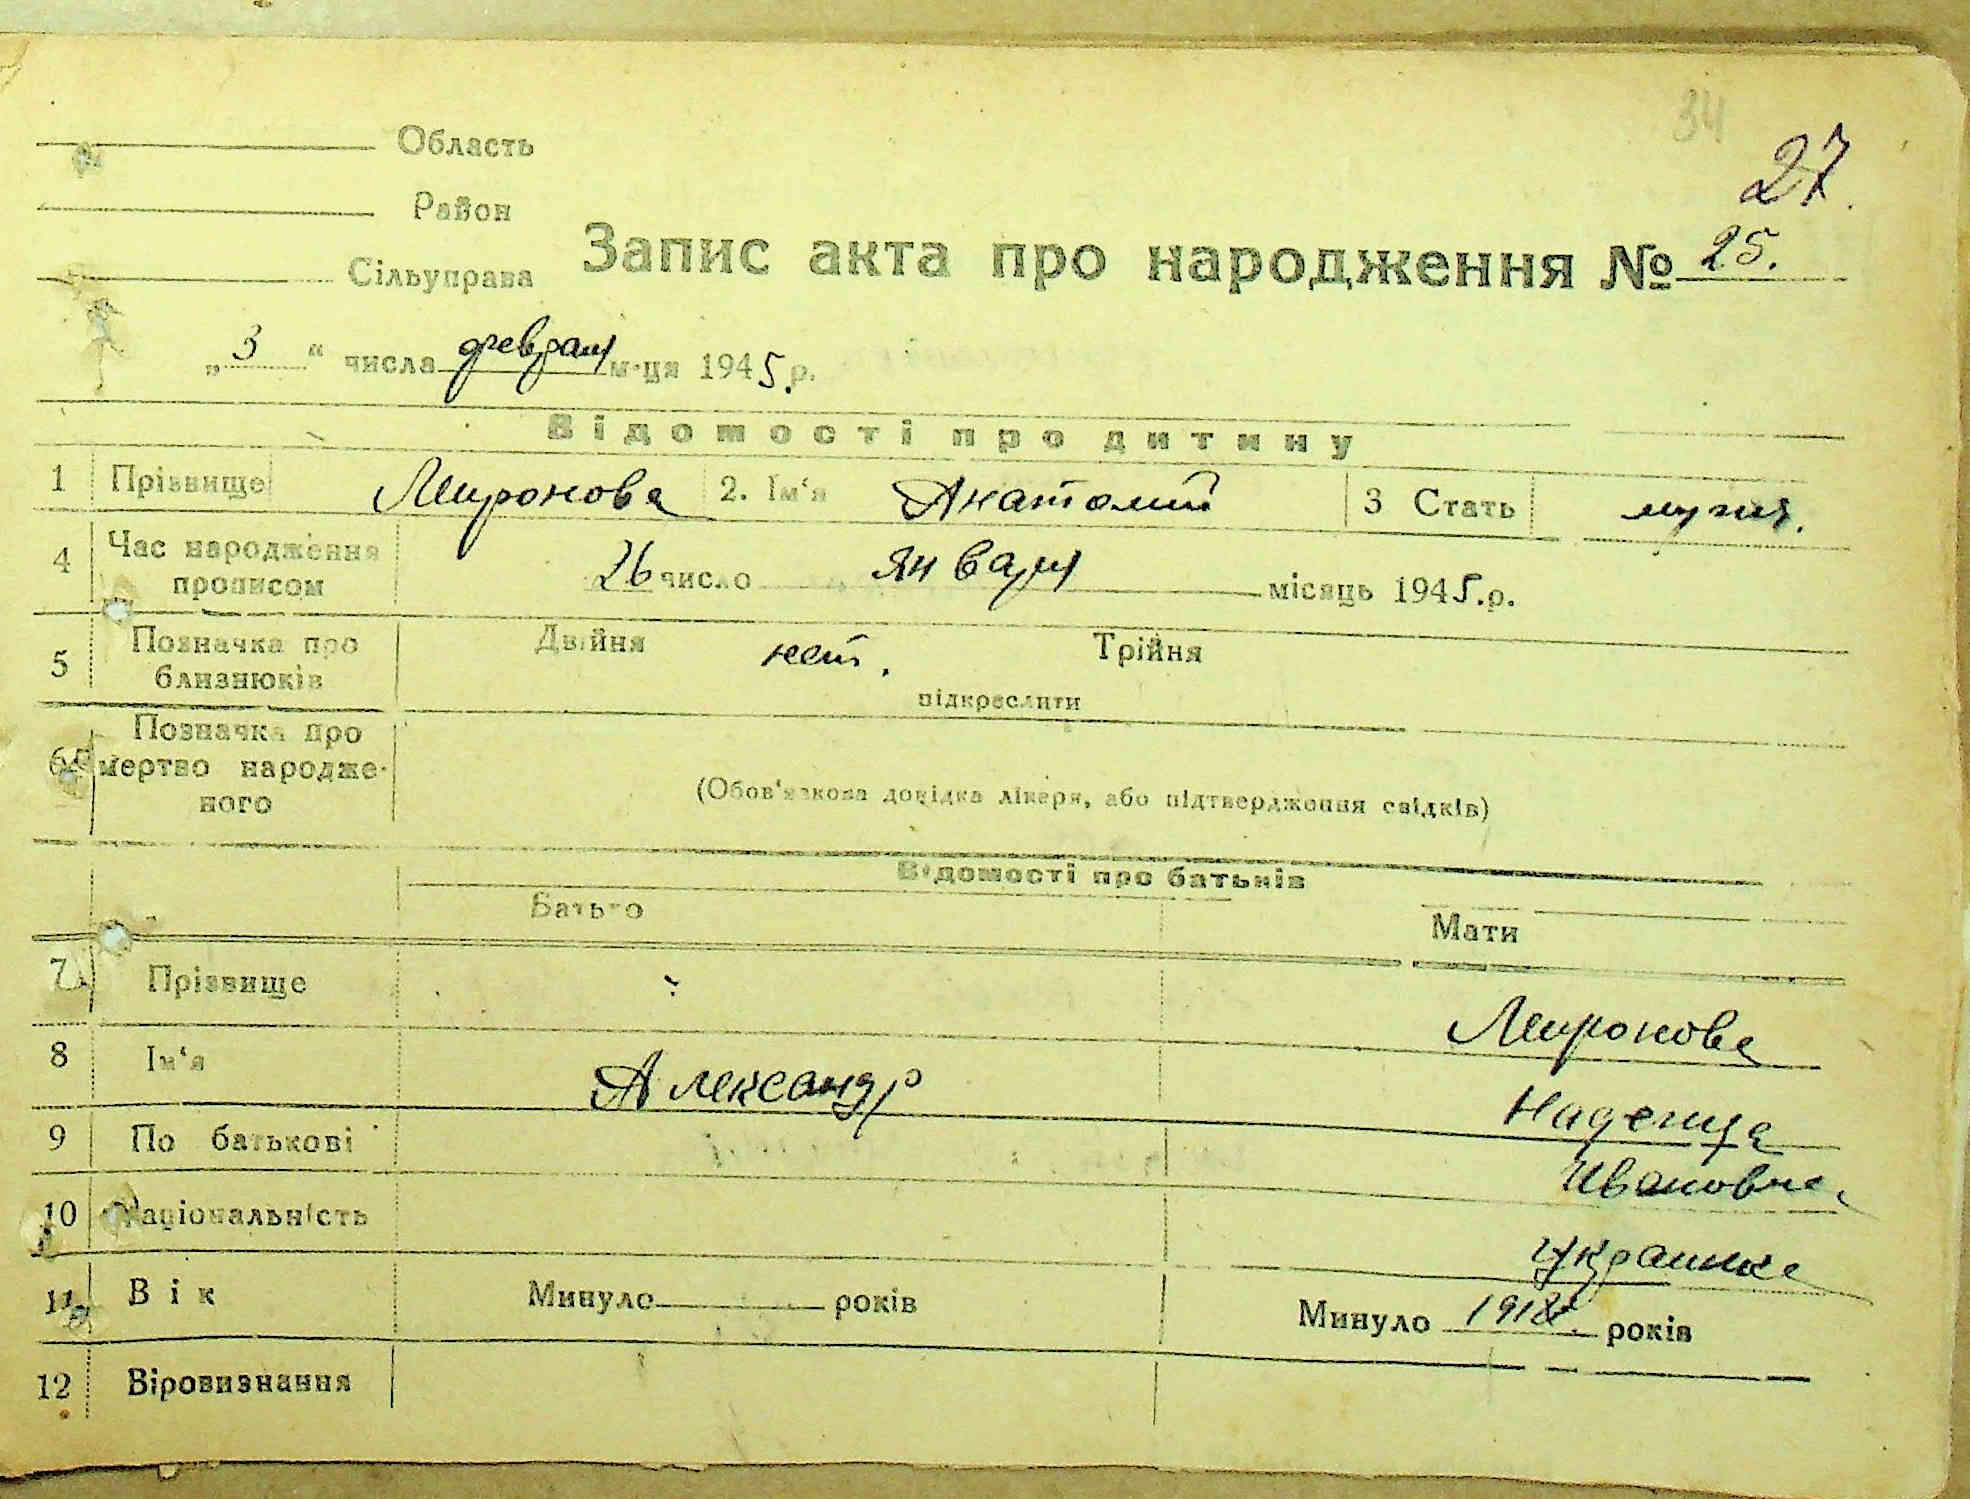 34
27.
Область
Район
Сільуправа
Запис акта про народження № 25.
„ 3 “ числа февраля м-ця 1945 р.
Відомості про дитину
1 Прізвище Миронова 2. Ім‘я Анатолий 3 Стать мужс.
4 Час народження прописом 26 число января місяць 1945.р.
5 Позначка про близнюків Двійня нет. Трійня
підкреслити
6 Позначка про мертво народже-ного
(Обов‘язкова довідка лікаря, або підтвердження свідків)
Відомості про батьків
Батько Мати
7 Прізвище Миронова
8 Ім‘я Александр Надежда
9 По батькові Ивановна
10 Національність украинка
11 Вік Минуло років Минуло років
12 Віровизнання